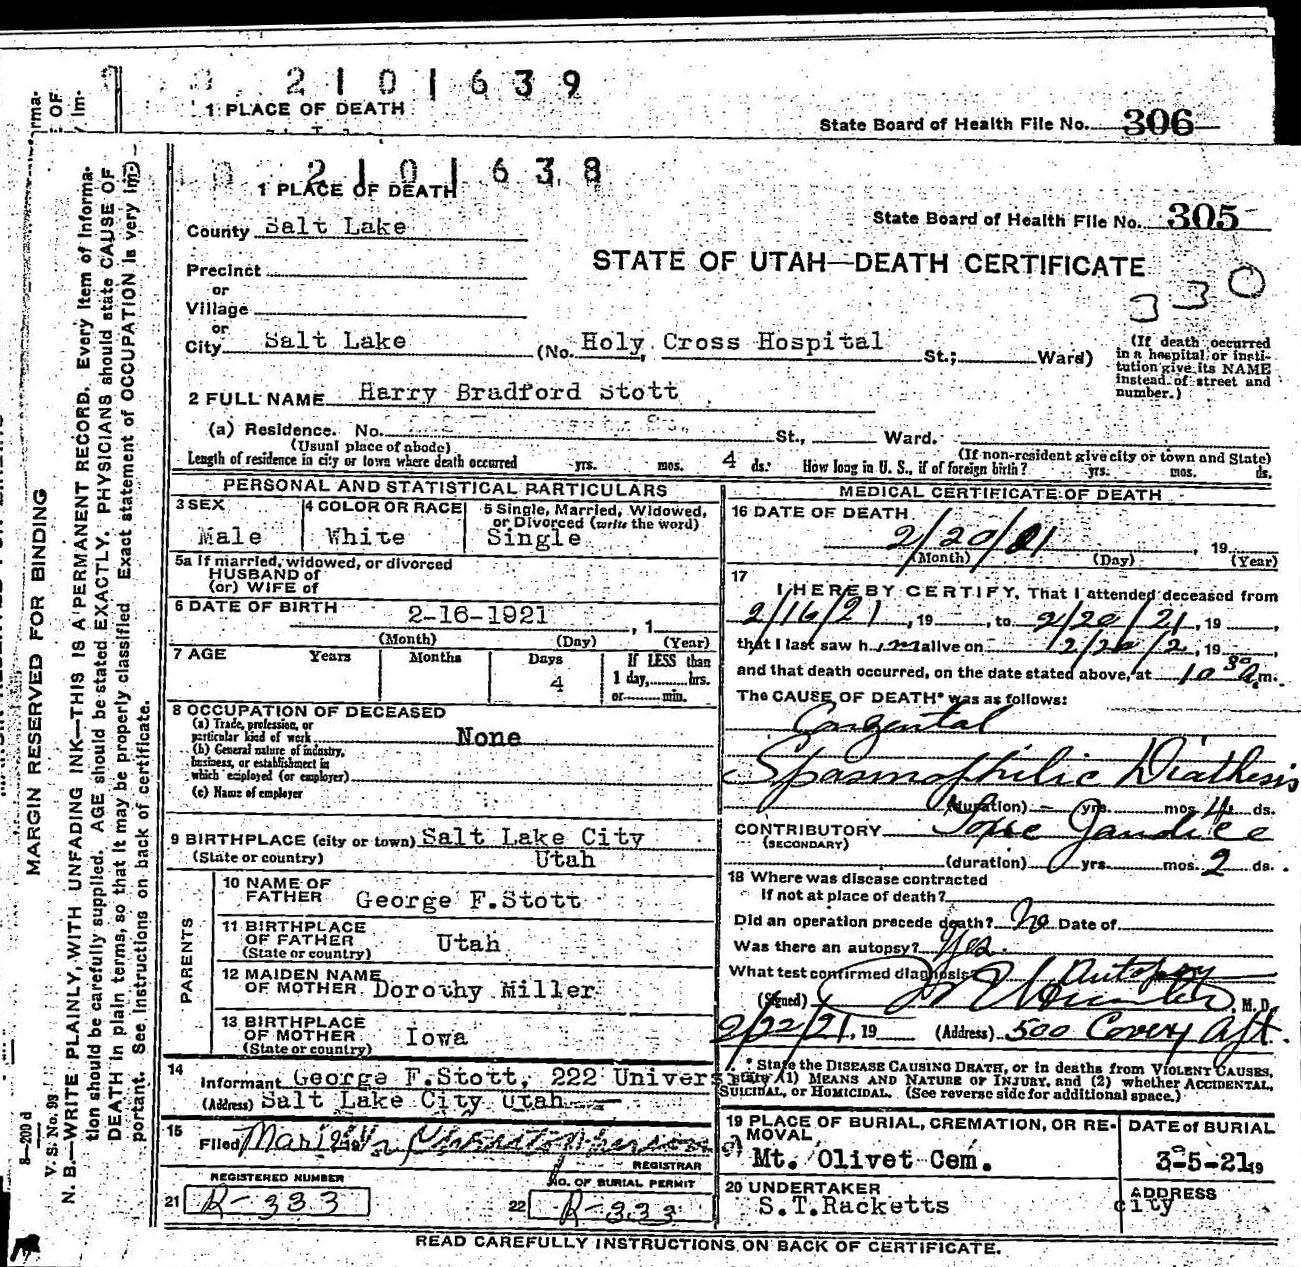 2 1 0 1 6 3 9
1 PLACE OF DEATH
State Board of Health File No. 306
2 1 0 1 6 3 8
1 PLACE OF DEATH
State Board of Health File No. 305
County Salt Lake
STATE OF UTAH—DEATH CERTIFICATE
330
Precinct
or
Village
or
City Salt Lake (No. Holy Cross Hospital St.; Ward)
(If death occurred in a hospital or insti-
tution give its NAME instead of street and number.)
2 FULL NAME Harry Bradford Stott
(a) Residence. No. St., Ward.
(Usual place of abode) (If non-resident give city or town and State)
Length of residence in city or town where death occurred yrs. mos. 4 ds. How long in U. S., if of foreign birth? yrs. mos. ds.
PERSONAL AND STATISTICAL PARTICULARS
3 SEX Male
4 COLOR OR RACE White
5 Single, Married, Widowed, or Divorced (write the word) Single
5a If married, widowed, or divorced
HUSBAND of
(or) WIFE of
6 DATE OF BIRTH 2-16-1921 , 1
(Month) (Day) (Year)
7 AGE Years Months Days 4
If LESS than 1 day, hrs. or min.
8 OCCUPATION OF DECEASED
(a) Trade, profession, or particular kind of work None
(b) General nature of industry, business, or establishment in which employed (or employer)
(c) Name of employer
9 BIRTHPLACE (city or town) Salt Lake City
(State or country) Utah
PARENTS
10 NAME OF FATHER George F.Stott
11 BIRTHPLACE OF FATHER (State or country) Utah
12 MAIDEN NAME OF MOTHER Dorothy Miller
13 BIRTHPLACE OF MOTHER (State or country) Iowa
14 Informant George F.Stott, 222 Univers
(Address) Salt Lake City Utah
15 Filed Mar
REGISTRAR
REGISTERED NUMBER
21 R-333
NO. OF BURIAL PERMIT
22 R-333
MEDICAL CERTIFICATE OF DEATH
16 DATE OF DEATH
2/20/21 , 19
(Month) (Day) (Year)
17 I HEREBY CERTIFY, That I attended deceased from
2/16/21 , 19 , to 2/20/21, 19 ,
that I last saw h im alive on 2/20/2 , 19 ,
and that death occurred, on the date stated above, at 10 30 a m.
The CAUSE OF DEATH* was as follows:
Congental
Spasmophilic Diathesis
(duration) yrs. mos. 4 ds.
CONTRIBUTORY Toxic Jaundice
(SECONDARY)
(duration) yrs. mos. 2 ds.
18 Where was disease contracted
If not at place of death?
Did an operation precede death? No Date of
Was there an autopsy? Yes
What test confirmed diagnosis? Autopsy
(Signed) M. D.
2/22/21, 19 (Address) 500
* State the DISEASE CAUSING DEATH, or in deaths from VIOLENT CAUSES,
state (1) MEANS AND NATURE OF INJURY, and (2) whether ACCIDENTAL,
SUICIDAL, or HOMICIDAL. (See reverse side for additional space.)
19 PLACE OF BURIAL, CREMATION, OR RE-
MOVAL,
Mt. Olivet Cem.
DATE of BURIAL
3-5-21 19
20 UNDERTAKER
S.T.Racketts
ADDRESS
city
READ CAREFULLY INSTRUCTIONS ON BACK OF CERTIFICATE.
MARGIN RESERVED FOR BINDING
N. B.—WRITE PLAINLY, WITH UNFADING INK—THIS IS A PERMANENT RECORD. Every item of informa-
tion should be carefully supplied. AGE should be stated EXACTLY. PHYSICIANS should state CAUSE OF
DEATH in plain terms, so that it may be properly classified. Exact statement of OCCUPATION is very im-
portant. See instructions on back of certificate.
V. S. No. 98
8—209 d